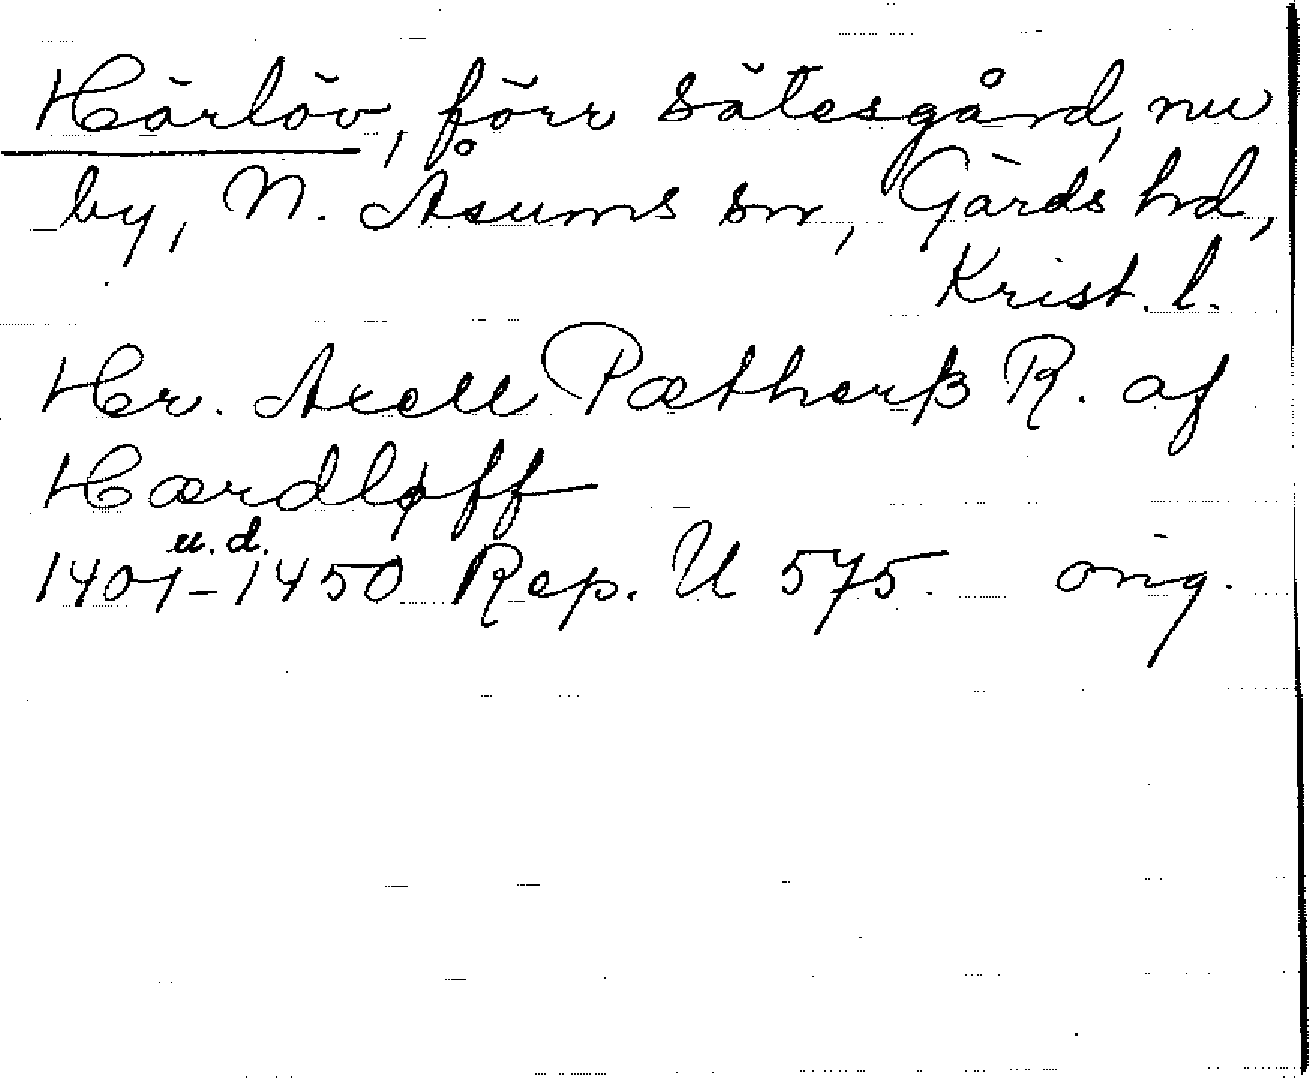 Härlöv, förr sätesgård, nu
by, N. Åsums sn, Gärds hd,
Krist. l.
Hr. Axell Pætherß R. af
Hærdløff
u.d.
1401-1450 Rep. U 575. orig.